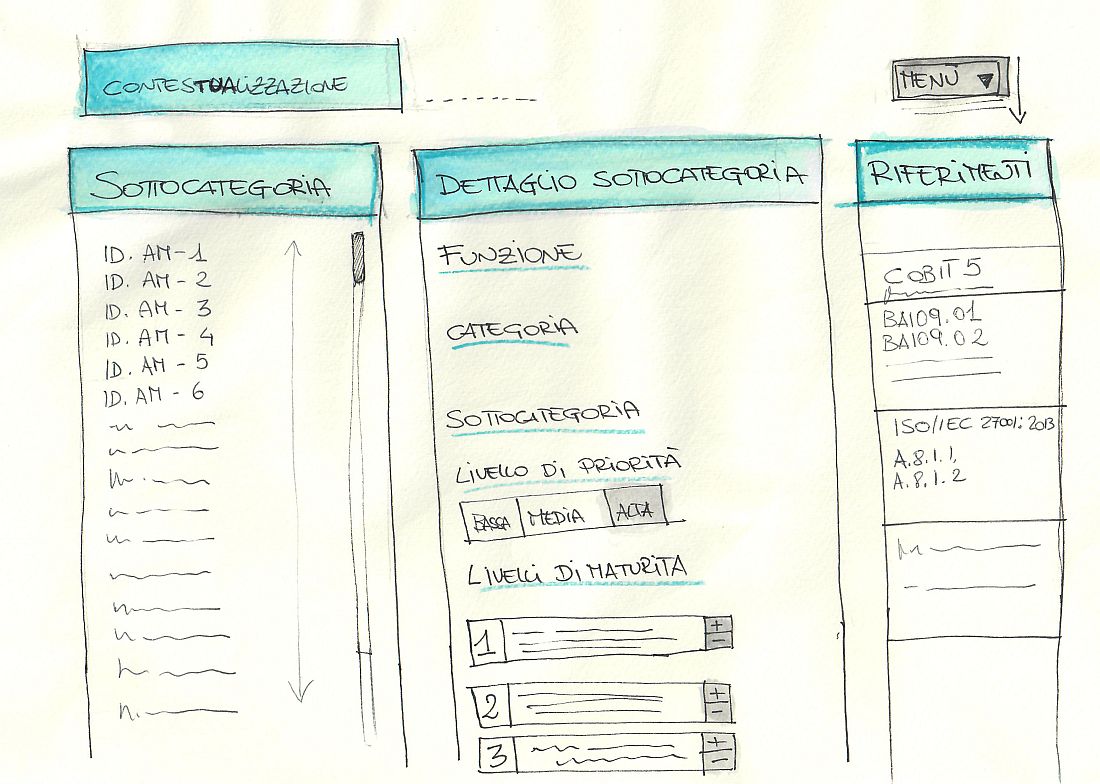 CONTESTUALIZZAZIONE
MENÙ
SOTTOCATEGORIA
ID. AM-1
ID. AM - 2
ID. AM - 3
ID. AM - 4
ID. AM - 5
ID. AM - 6
DETTAGLIO SOTTOCATEGORIA
FUNZIONE
CATEGORIA
SOTTOCATEGORIA
LIVELLO DI PRIORITÀ
BASSA MEDIA ALTA
LIVELLI DI MATURITÀ
1 + -
2 + -
3 + -
RIFERIMENTI
COBIT 5
BAI09.01
BAI09.02
ISO/IEC 27001:2013
A.8.1.1,
A.8.1.2